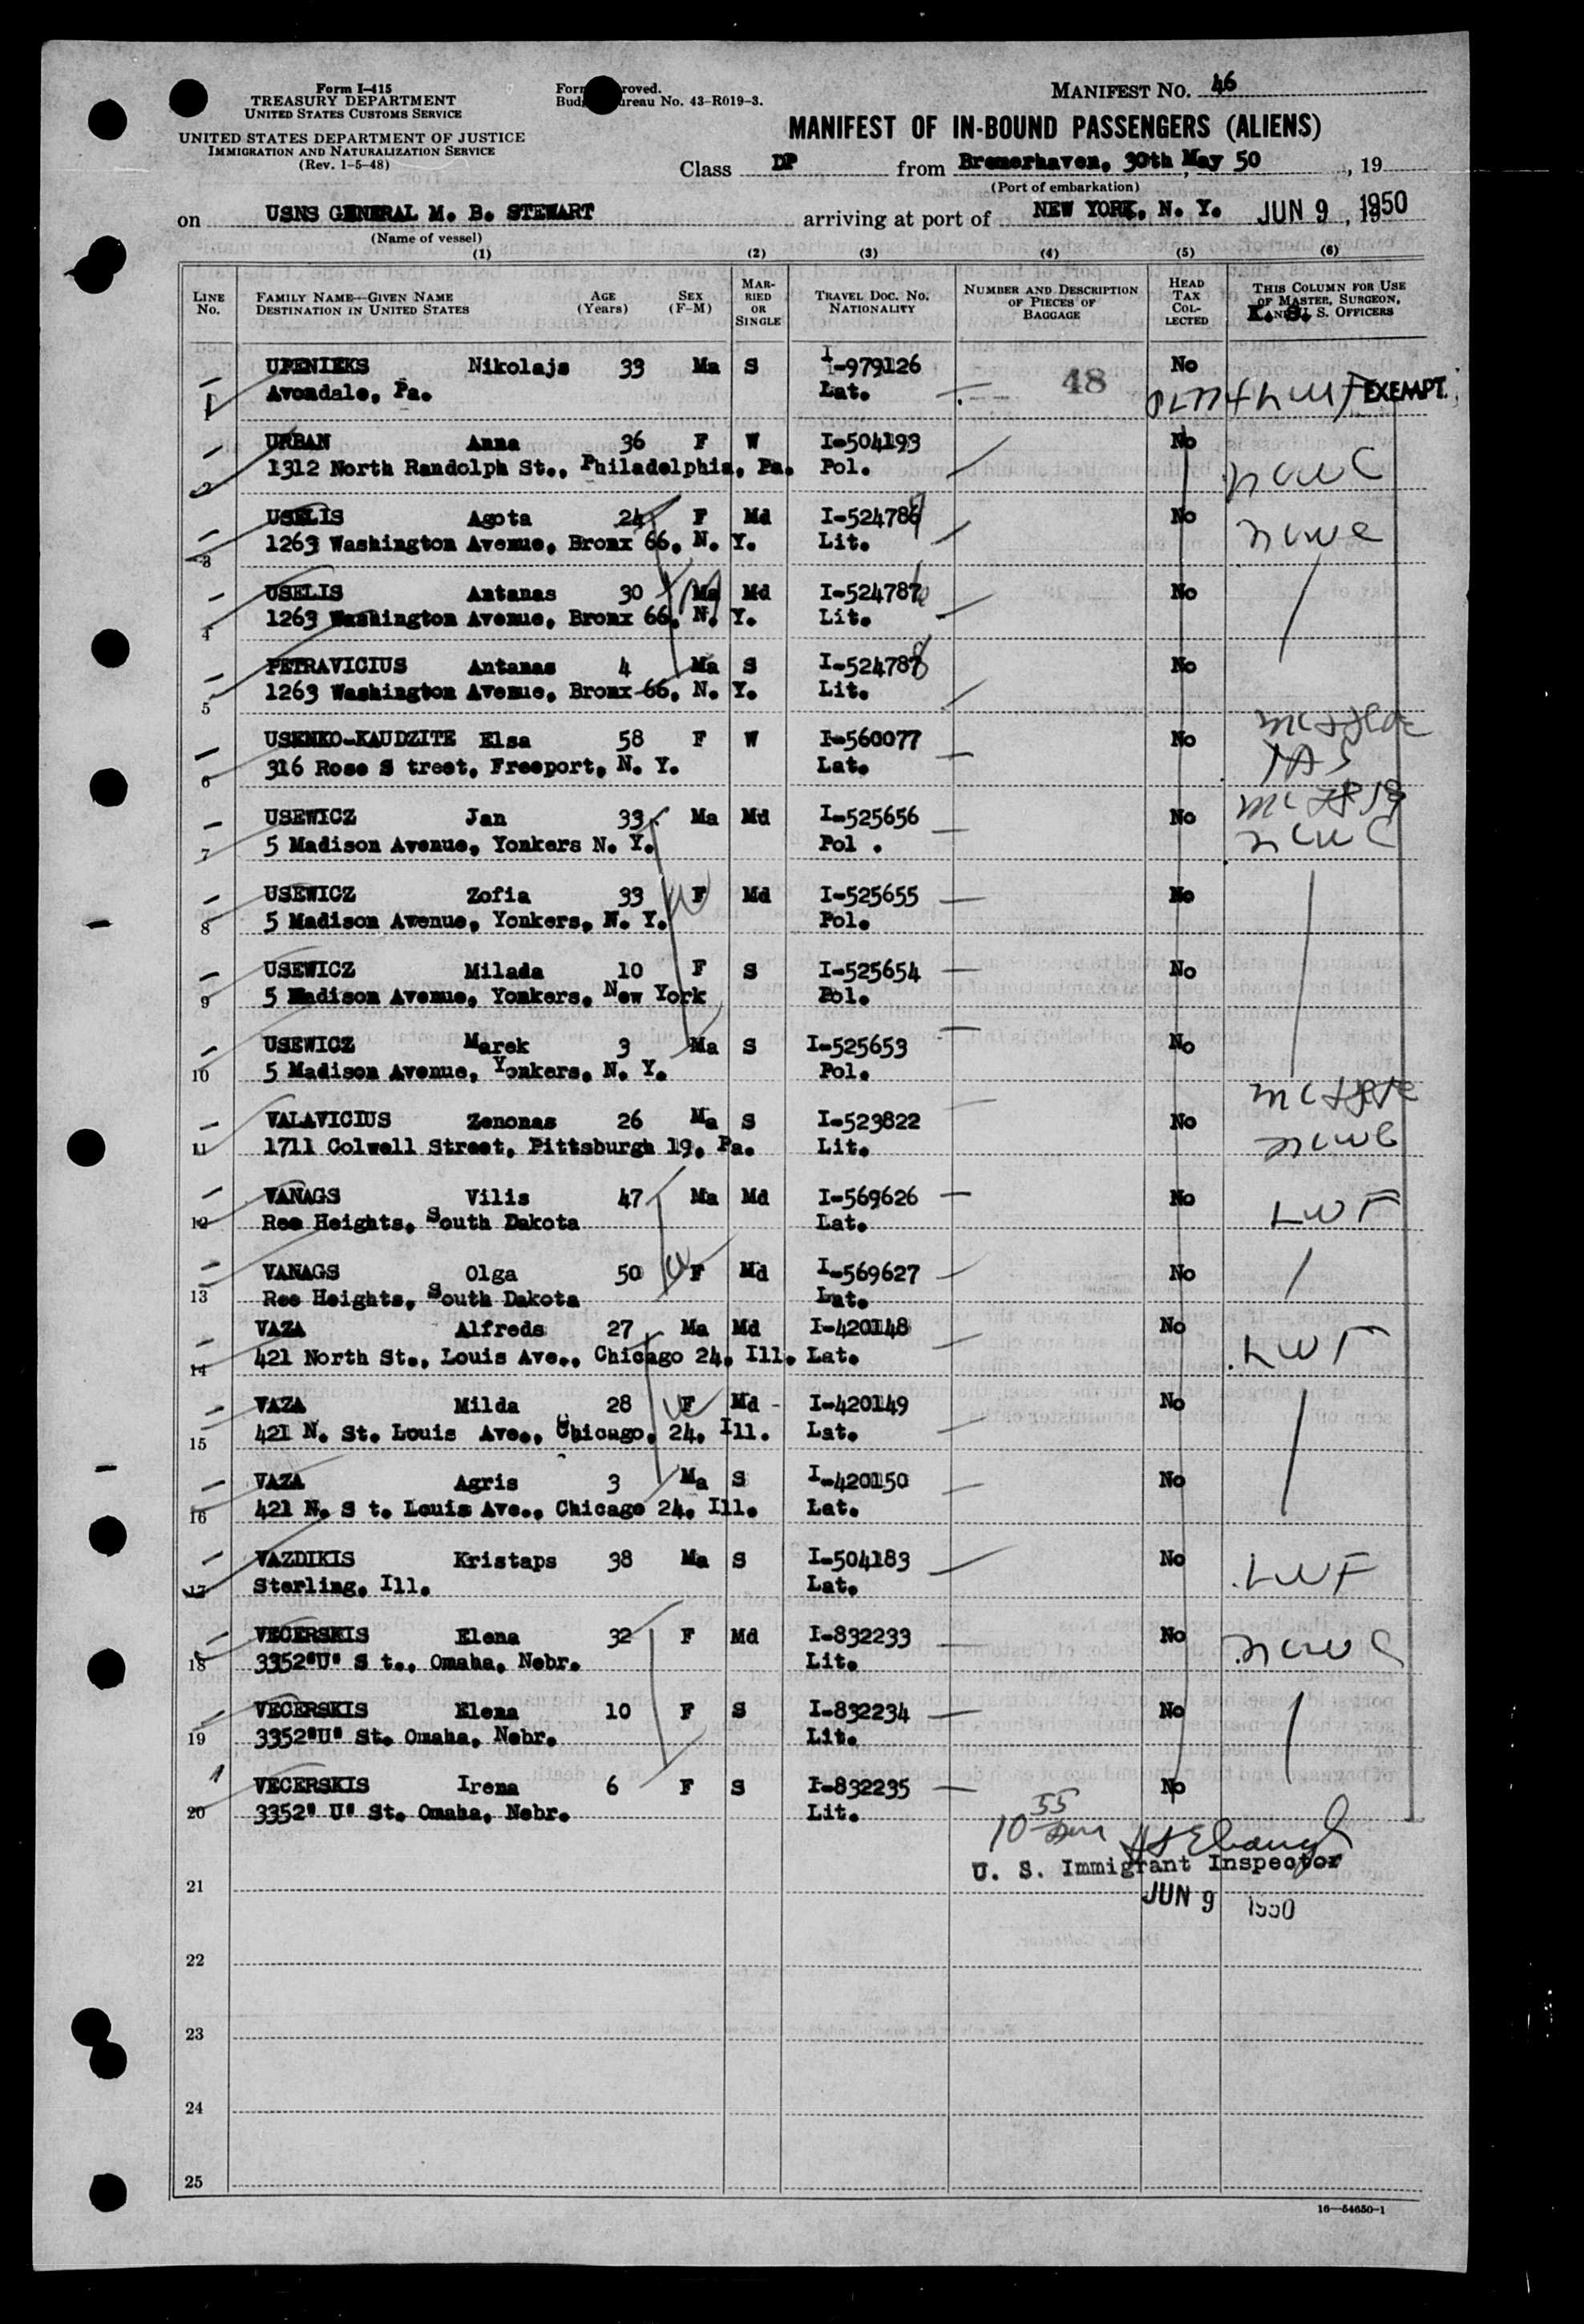 Form I-415
TREASURY DEPARTMENT
UNITED STATES CUSTOMS SERVICE
UNITED STATES DEPARTMENT OF JUSTICE
IMMIGRATION AND NATURALIZATION SERVICE
(Rev. 1-5-48)
Form roved.
Bud ureau No. 43-R019-3.
MANIFEST NO. 46
MANIFEST OF IN-BOUND PASSENGERS (ALIENS)
Class DP from Bremerhaven, 30th May 50, 19
(Port of embarkation)
on USNS GENERAL M. B. STEWART arriving at port of NEW YORK, N. Y. JUN 9, 1950
(Name of vessel)
(1) (2) (3) (4) (5) (6)
LINE No.
FAMILY NAME—GIVEN NAME DESTINATION IN UNITED STATES
AGE (Years)
SEX (F-M)
MARRIED OR SINGLE
TRAVEL DOC. NO. NATIONALITY
NUMBER AND DESCRIPTION OF PIECES OF BAGGAGE
HEAD TAX COLLECTED
THIS COLUMN FOR USE OF MASTER, SURGEON, AND U. S. OFFICERS
1 UPENIEKS Nikolajs 33 Ma S I-979126 48 No
Avondale, Pa. Lat. EXEMPT.
2 URBAN Anna 36 F W I-504193 No
1312 North Randolph St., Philadelphia, Pa. Pol. NCWC
3 USELIS Agota 24 F Md I-524786 No
1263 Washington Avenue, Bronx 66, N. Y. Lit. NCWC
4 USELIS Antanas 30 Ma Md I-524787 No
1263 Washington Avenue, Bronx 66, N. Y. Lit.
5 PETRAVICIUS Antanas 4 Ma S I-524788 No
1263 Washington Avenue, Bronx 66, N. Y. Lit.
6 USENKO-KAUDZITE Elsa 58 F W I-560077 No
316 Rose S treet, Freeport, N. Y. Lat.
7 USEWICZ Jan 33 Ma Md I-525656 No
5 Madison Avenue, Yonkers N. Y. Pol . NCWC
8 USEWICZ Zofia 33 F Md I-525655 No
5 Madison Avenue, Yonkers, N. Y. Pol.
9 USEWICZ Milada 10 F S I-525654 No
5 Madison Avenue, Yonkers, New York Pol.
10 USEWICZ Marek 3 Ma S I-525653 No
5 Madison Avenue, Yonkers, N. Y. Pol.
11 VALAVICIUS Zenonas 26 Ma S I-523822 No
1711 Colwell Street, Pittsburgh 19, Pa. Lit. NCWC
12 VANAGS Vilis 47 Ma Md I-569626 No
Ree Heights, South Dakota Lat. LWF
13 VANAGS Olga 50 F Md I-569627 No
Ree Heights, South Dakota Lat.
14 VAZA Alfreds 27 Ma Md I-420148 No
421 North St., Louis Ave., Chicago 24, Ill. Lat. LWF
15 VAZA Milda 28 F Md - I-420149 No
421 N. St. Louis Ave., Chicago, 24, Ill. Lat.
16 VAZA Agris 3 Ma S I-420150 No
421 N. S t. Louis Ave., Chicago 24, Ill. Lat.
17 VAZDIKIS Kristaps 38 Ma S I-504183 No
Sterling, Ill. Lat. LWF
18 VECERSKIS Elena 32 F Md I-832233 No
3352"U" S t., Omaha, Nebr. Lit. NCWC
19 VECERSKIS Elena 10 F S I-832234 No
3352"U" St. Omaha, Nebr. Lit.
20 VECERSKIS Irena 6 F S I-832235 No
3352" U" St. Omaha, Nebr. Lit.
10 55
U. S. Immigrant Inspector
JUN 9 1950
21
22
23
24
25
16—54650-1